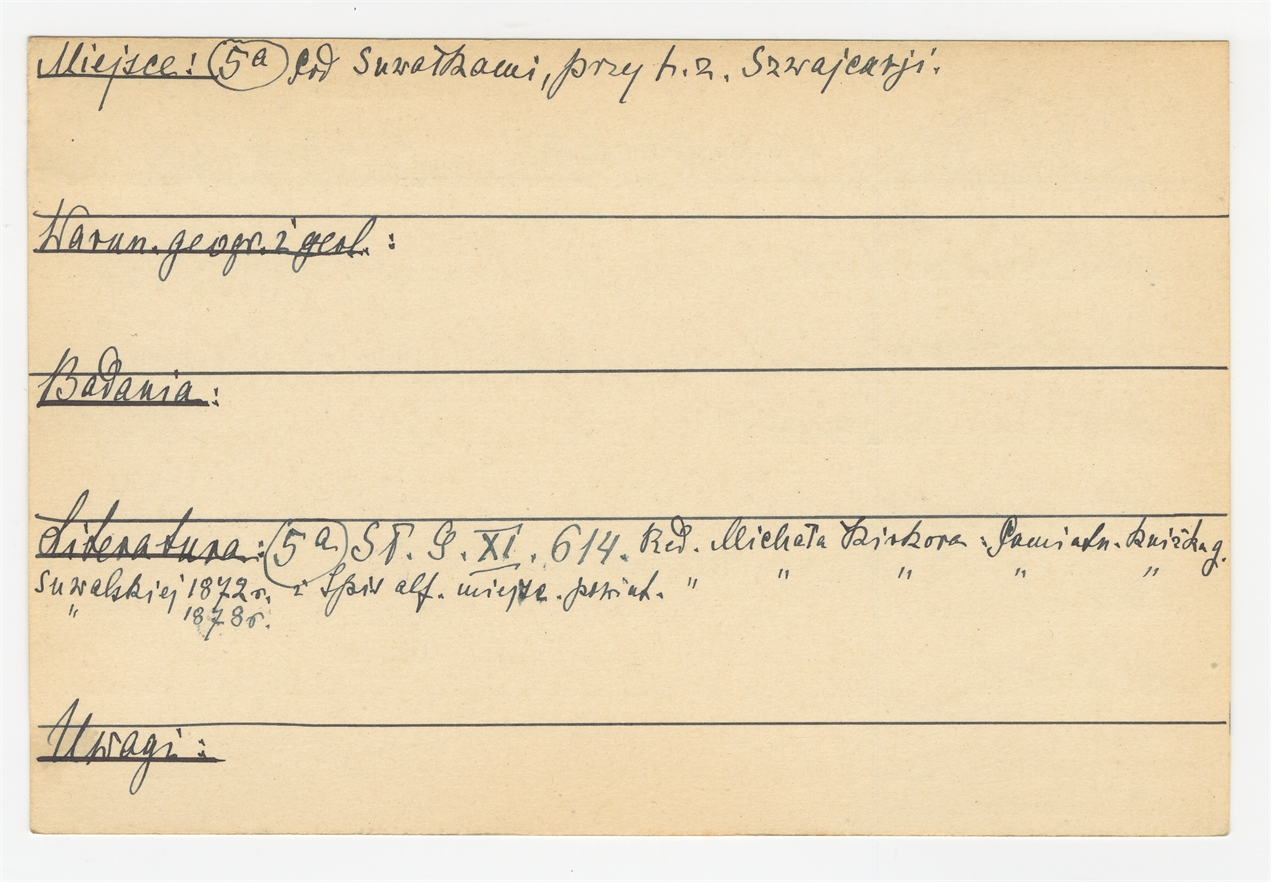 Miejsce: 5a Pod Suwałkami, przy t. z. Szwajcarji.
Warun. geogr. i geol. :
Badania:
Literatura: 5a SŁ. G. XI. 614. Red. Michała Kirkora: Pamiatn. kniżka g.
Suwalskiej 1872 r. i Spis alf. miejsc. powiat. " " " " "
" 1878 r.
Uwagi: